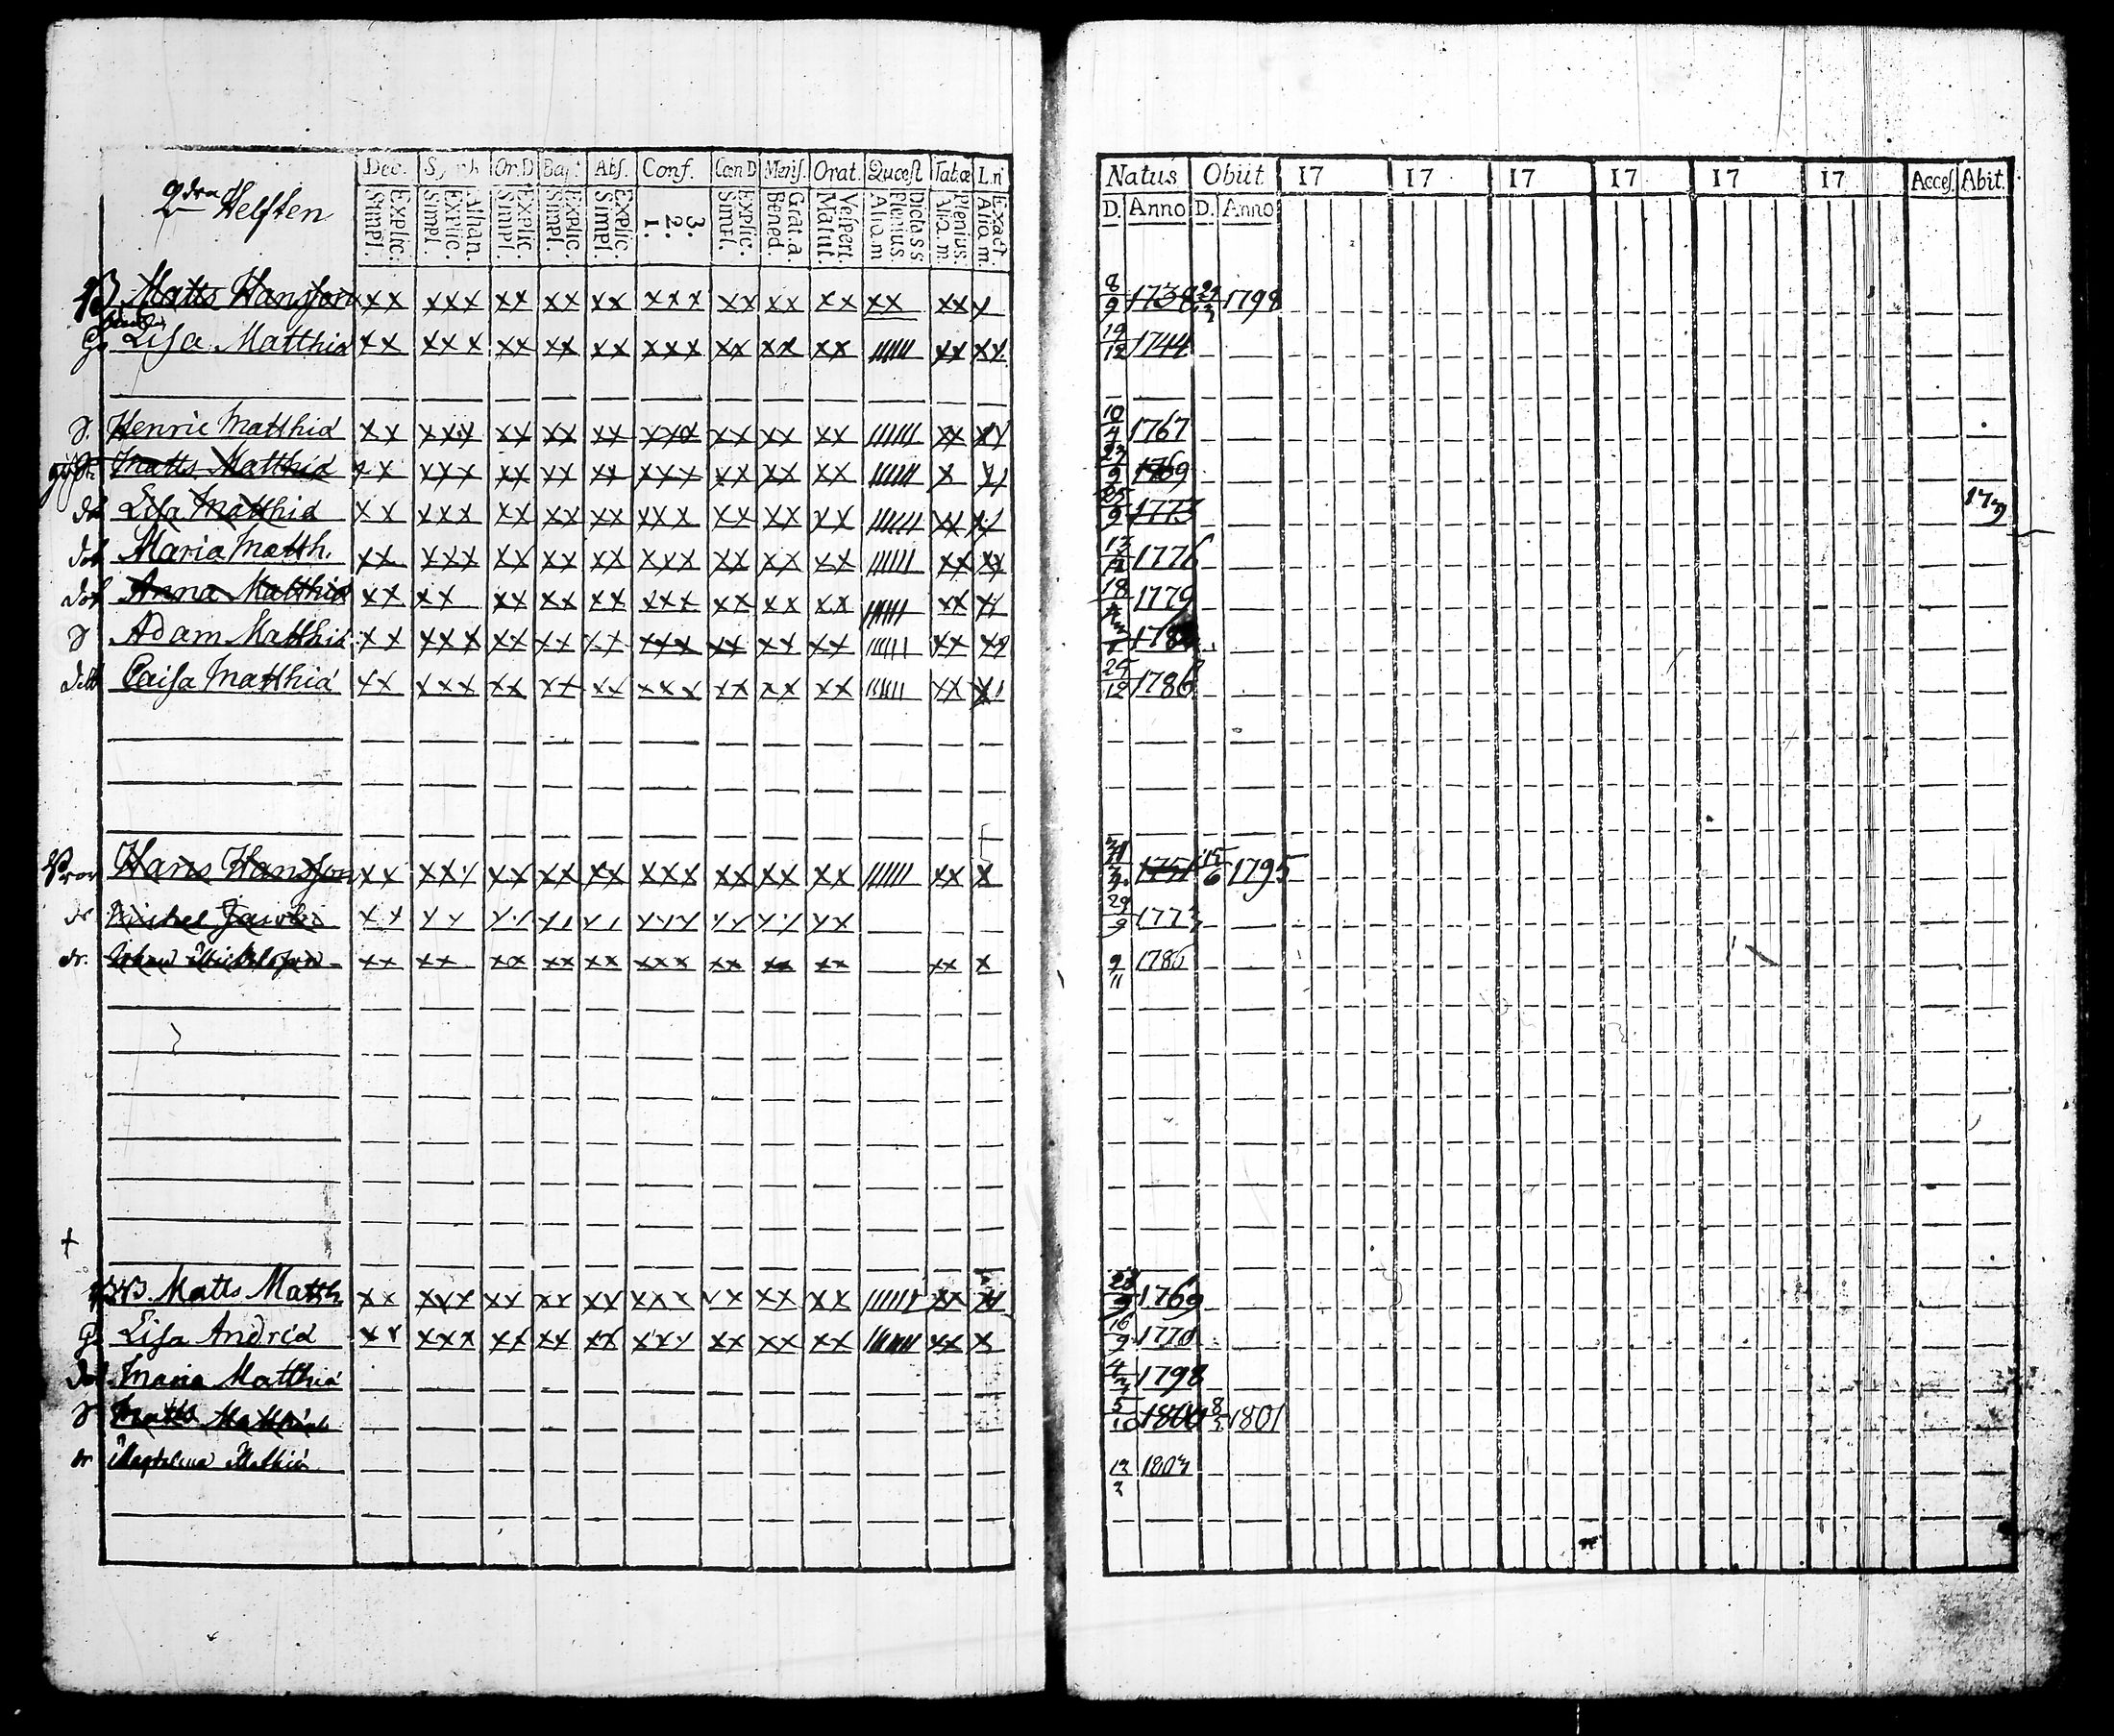 2dra Helften
Dec. Symb. Or.D Bap. Abs. Conf. Cœn D Mens. Orat. Quæst Tab.œ L.n
Explic. Simpl. Athan. Explic. Simpl. Explic. Simpl. Explic. Simpl. Explic. Simpl. 3. 2. 1. Explic. Simpl. Grat. a. Bened. Vespert. Matut. Dicta s s. Plenius Alia m Plenius. Alia. m. Exact Alia m.
Natus Obiit 17 17 17 17 17 17 Acces. Abit.
D. Anno D. Anno
B Matts Hansson xx xxx xx xx xx xxx xx xx xx xx xx x 8/9 1738 1798
G. Lisa Matthiæ xx xxx xx xx xx xxx xx xx xx |||||| xx xx 19/12 1744
d. Henric Matthiæ xx xxx xx xx xx xxx xx xx xx |||||| xx xx 10/4 1767
gift. Matts Matthiæ xx xxx xx xx xx xxx xx xx xx |||||| x xx 1769
dot Lisa Matthiæ xx xxx xx xx xx xxx xx xx xx |||||| xx xx 25/9 1773
dot Maria Matth. xx xxx xx xx xx xxx xx xx xx |||||| xx xx 13/12 1776
dot Anna Matthiæ xx xx xx xx xx xxx xx xx xx |||||| xx xx 18 1779
d Adam Matthiæ xx xxx xx xx xx xxx xx xx xx |||||| xx xx
dott Caisa Matthiæ xx xxx xx xx xx xxx xx xx xx |||||| xx xx 25/12 1786
Hans Hansson xx xxx xx xx xx xxx xx xx xx |||||| xx x 1751 15/6 1795
dr xx xx xx xx xx xxx xx xx xx 29/9 1773
dr. Johan Michelsson xx xx xx xx xx xxx xx xx xx xx x 9/11 1786
+
B. Matts Matth. xx xxx xx xx xx xxx xx xx xx |||||| xx xx 28/9 1769
G. Lisa Andreæ xx xxx xx xx xx xxx xx xx xx |||||| xx x 16/9 1770
dot. Maria Matthiæ 1798
d Matts Matthiæ 5/10 1800 1801
dr Magdalena Mathiæ 1803